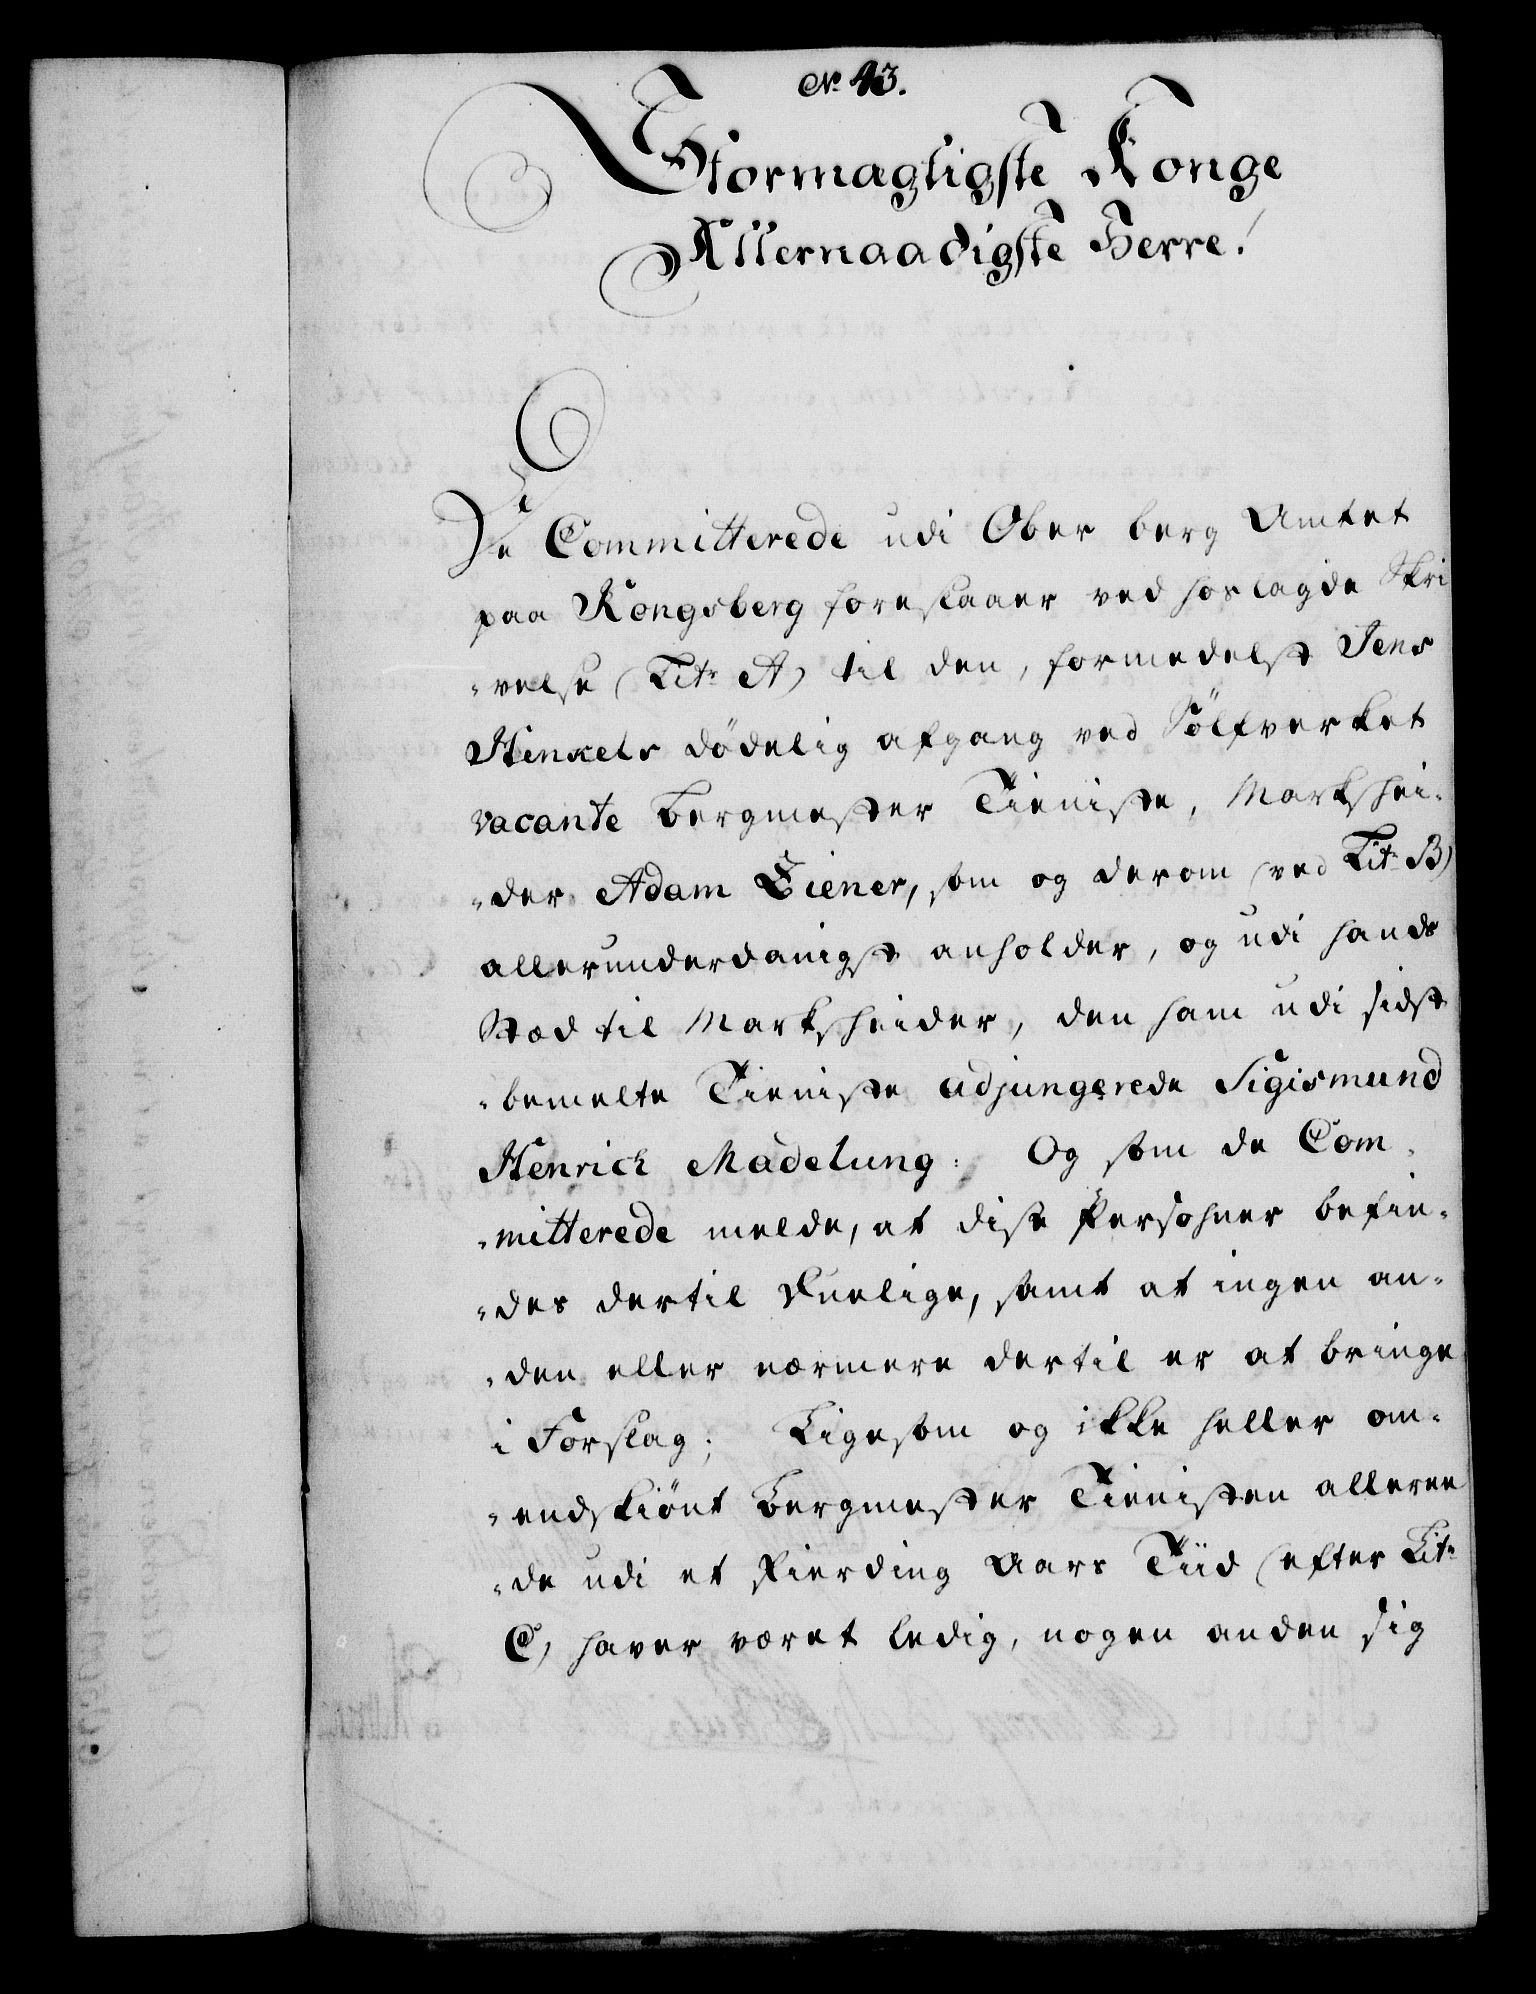 No 43.
Stormagtigste Konge
Allernaadigste Herre!
De Committerede udi Ober berg Amtet
paa Kongsberg foreslaaer ved hoslagde Skri
„velse (Litr A) til den, formedelst Jens
Henkels dödelig afgang ved Sölfverket
vacante Bergmester Tieniste, Markshei„
„der Adam Ziener, som og derom (ved Litr B)
allerunderdanigst anholder, og udi hands
Stæd til Marksheider, den ham udi sidst
„bemelte Tieniste adjungerede Sigismund
Henrich Madelung: Og som de Com„
„mitterede melde, at disse Persohner befin„
„des dertil duelige, samt at ingen an„
„den eller nærmere dertil er at bringe
i Forslag; Ligesom og ikke heller om„
„endskiönt Bergmester Tienisten alleree
„de udi et Fierding Aars Tiid (efter Litr
C) haver været ledig, nogen anden sig